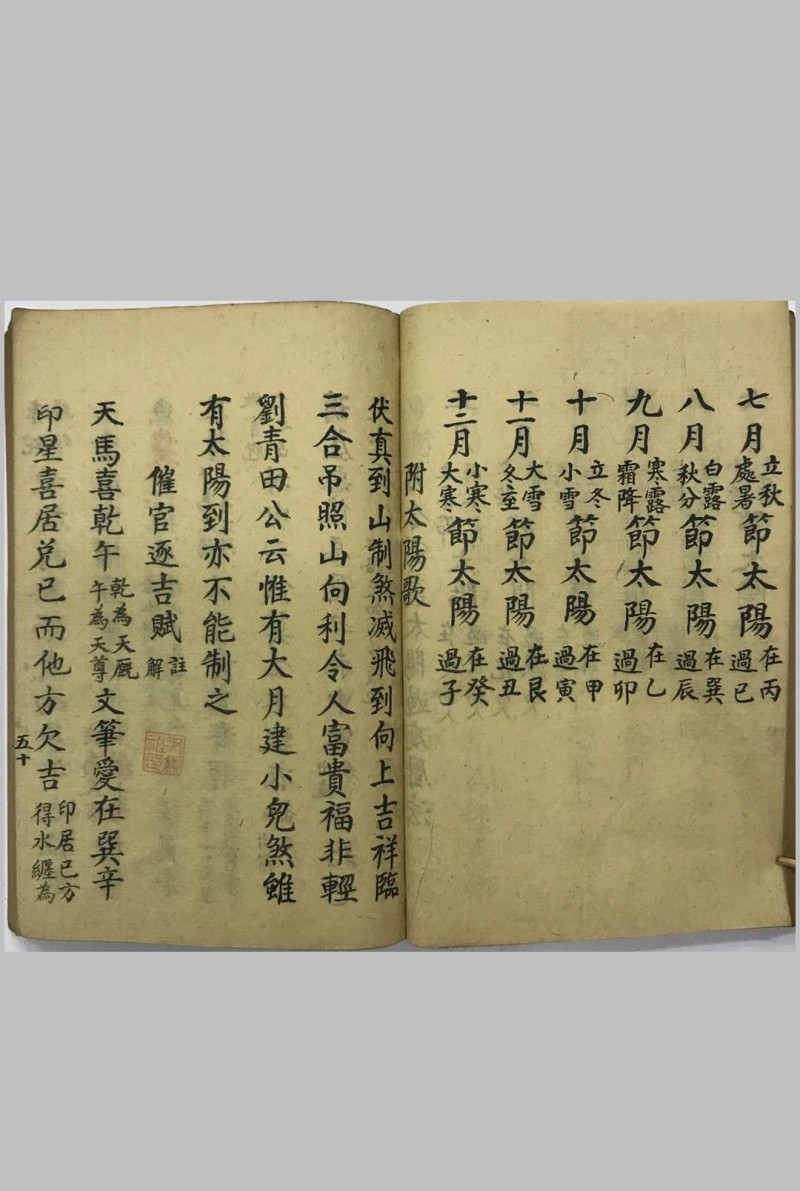 七月立秋處暑節太陽在丙過巳
八月白露秋分節太陽在巽過辰
九月寒露霜降節太陽在乙過卯
十月立冬小雪節太陽在甲過寅
十一月大雪冬至節太陽在艮過丑
十二月小寒大寒節太陽在癸過子
附太陽歌
伏真到山制煞滅飛到向上吉祥臨
三合吊照山向利令人富貴福非輕
劉青田公云惟有大月建小兒煞雖
有太陽到亦不能制之
催官逐吉賦註解
天馬喜乾午乾為天厩午為天尊文筆愛在巽辛
印星喜居兌巳而他方欠吉印居巳方得水纏為
五十